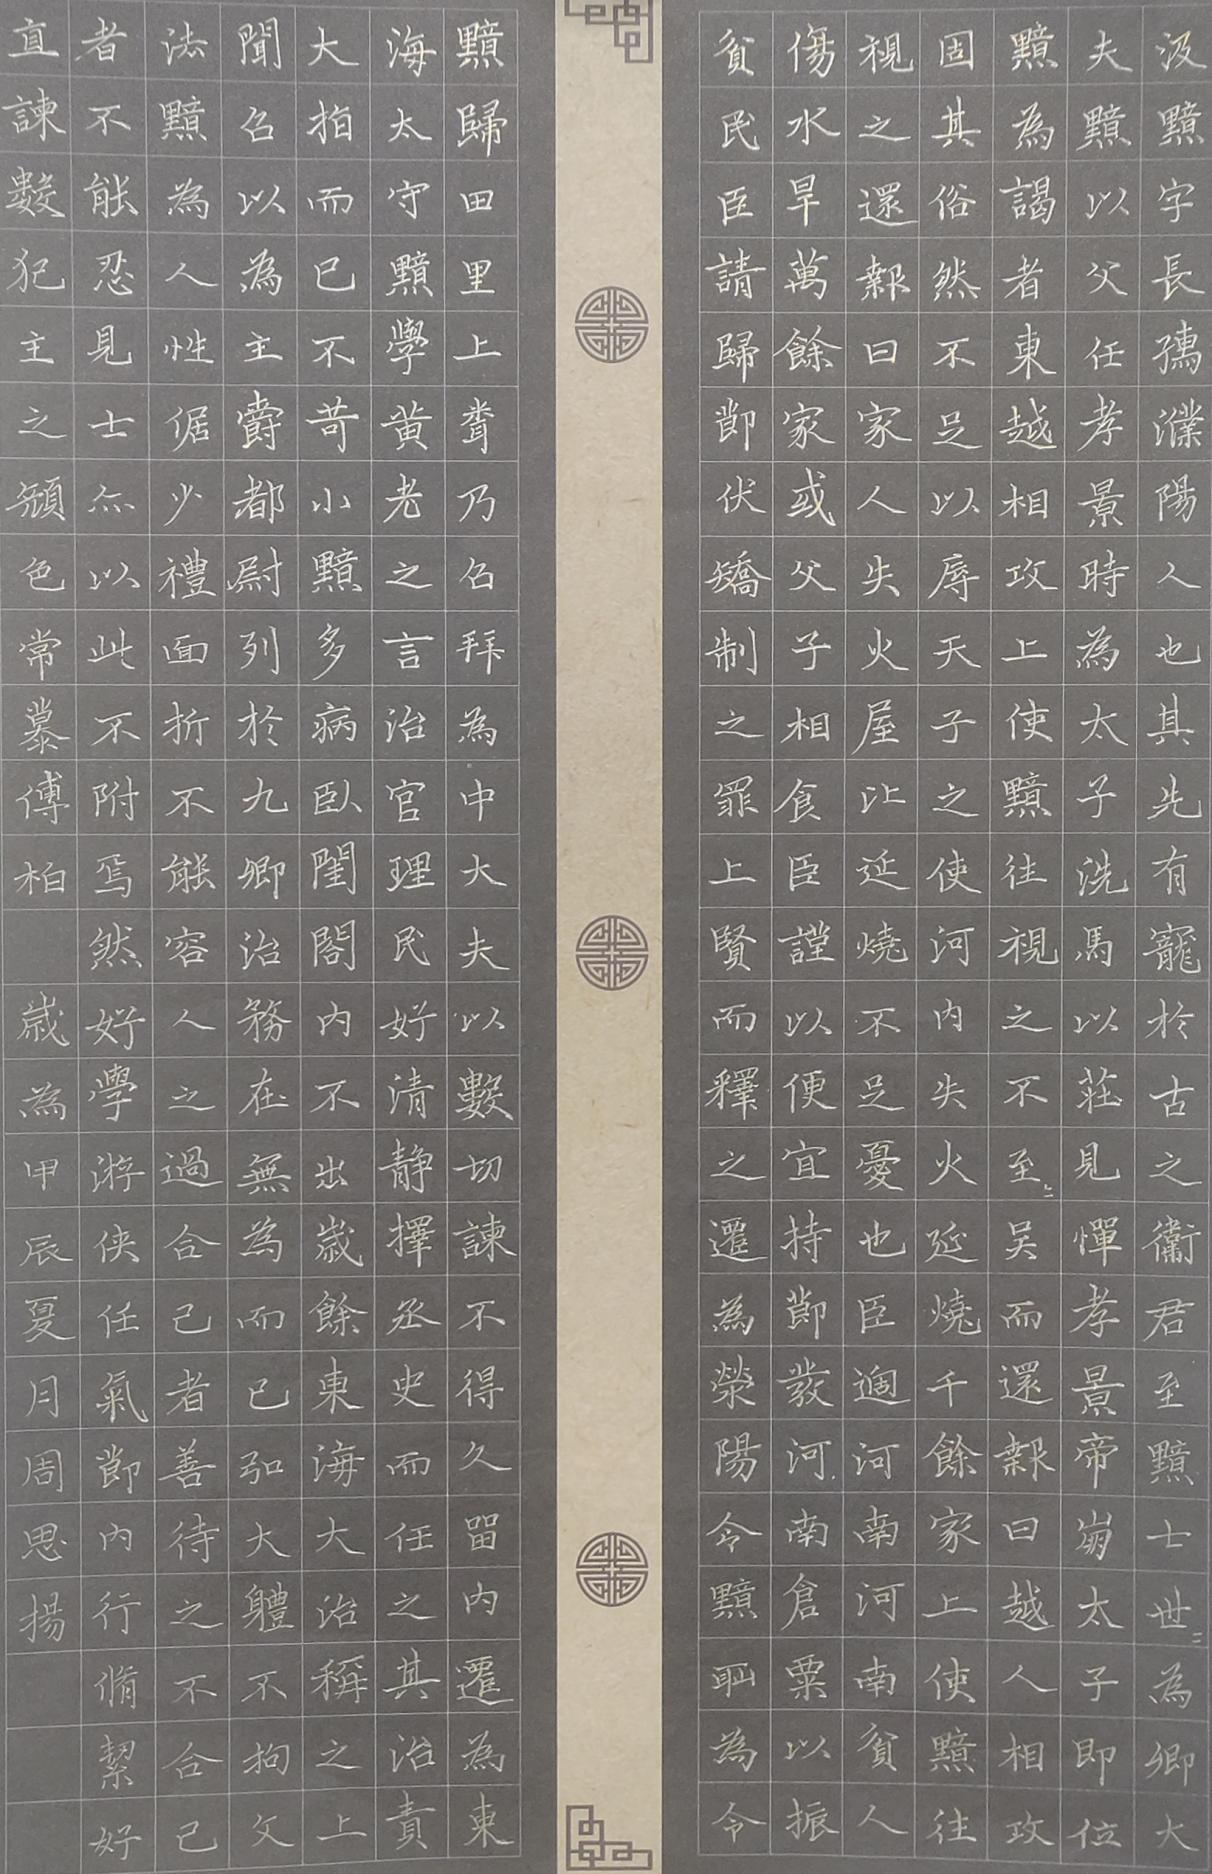 汲黯字長孺濮陽人也其先有寵於古之衞君至黯士世〻為卿大
夫黯以父任孝景時為太子洗馬以莊見憚孝景帝崩太子即位
黯為謁者東越相攻上使黯往視之不至〻吳而還報曰越人相攻
固其俗然不足以辱天子之使河内失火延燒千餘家上使黯往
視之還報曰家人失火屋比延燒不足憂也臣過河南河南貧人
傷水旱萬餘家或父子相食臣謹以便宜持節發河南倉粟以振
貧民臣請歸節伏矯制之罪上賢而釋之遷為滎陽令黯恥為令
黯歸田里上聞乃召拜為中大夫以數切諫不得久留内遷為東
海太守黯學黄老之言治官理民好清静擇丞史而任之其治責
大指而已不苛小黯多病臥閨閤内不出歲餘東海大治稱之上
聞召以為主爵都尉列於九卿治務在無為而已弘大體不拘文
法黯為人性倨少禮面折不能容人之過合己者善待之不合己
者不能忍見士亦以此不附焉然好學游俠任氣節内行脩絜好
直諫數犯主之顔色常慕傅柏 歲為甲辰夏月周思揚